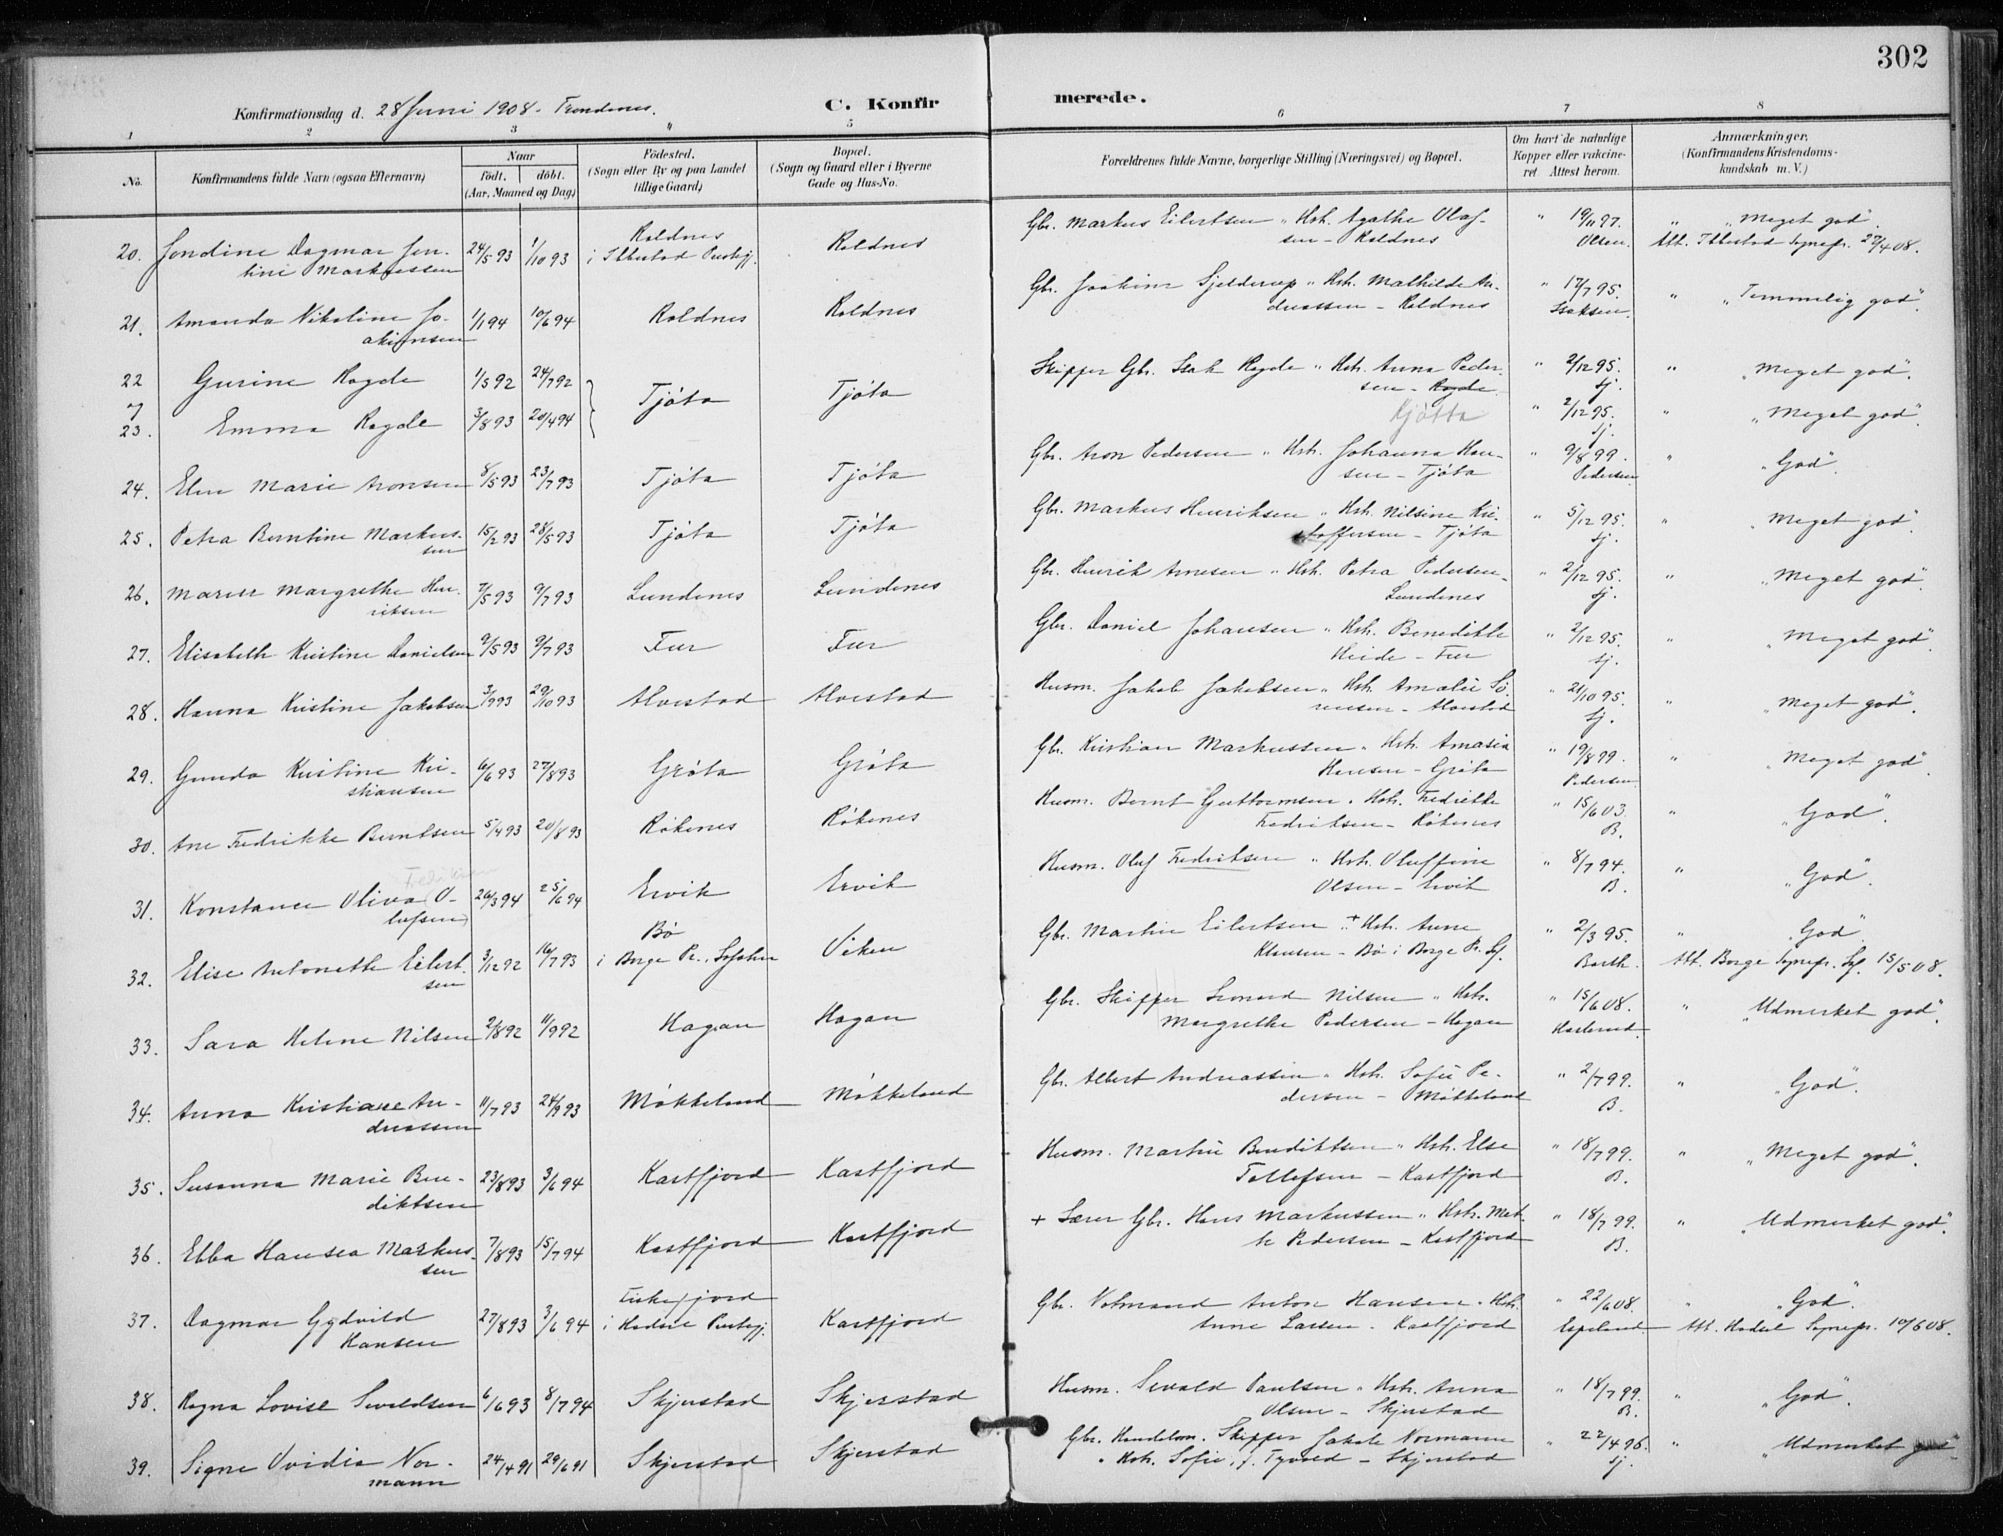 302
Konfirmationsdag d. 28 Juni 1908. Trondenes.
C. Konfir merede.
1 2 3 " 5 6 7 8
No.
Konfirmandens fulde Navn (ogsaa Efternavn)
Naar
født. døbt.
(Aar, Maaned og Dag)
Fødested.
(Sogn eller By og paa Landet
tillige Gaard)
Bopæl.
(Sogn og Gaard eller i Byerne
Gade og Hus-No.
Forældrenes fulde Navne, borgerlige Stilling (Næringsvei) og Bopæl.
Om havt de naturlige
Kopper eller vakcine-
ret Attest herom.
Anmærkninger.
(Konfirmandens Kristendoms-
kundskab m. V.)
20. Jendine Dagmar Jen-
tine Markussen 24/5 93 1/10 93 Roldnes
i Ibbestad Prestgj. Roldnes Gbr. Markus Eilertsen " Hstr. Agathe Olaf-
sen - Roldnes " 19/11 97.
Olsen. " "Meget god"
Att. Ibbestad Sognepr. 27/4 08.
21. Amanda Nikoline Jo-
akimsen 1/1 94 10/6 94 Roldnes Roldnes Gbr. Joakim Sjelderup " Hstr. Mathilde An-
dreassen - Roldnes " 17/7 95.
Isaksen. " "Temmelig god".
22 Gurine Ragde 1/5 92 24/7 92 Tjøta Tjøta Skipper Gbr. Isak Ragde " Hstr. Anna Peder-
sen - Ragde
Kjøtta " 2/12 95.
Sj. " "Meget god".
23. Emma Ragde 3/8 93 20/4 94 " 2/12 95.
Sj. " "Meget god".
24. Elen Marie Aronsen 8/5 93 23/7 93 Tjøta Tjøta Gbr. Aron Pedersen " Hstr. Johanna Han-
sen - Tjøta " 9/8 99.
Pedersen " "God".
25. Petra Berntine Markus-
sen 15/2 93 28/5 93 Tjøta Tjøta Gbr. Markus Henriksen " Hstr. Nilsine Kri-
stoffersen - Tjøta " 5/12 95.
Sj. " "Meget god".
26. Maren Margrethe Hen-
riksen 7/5 93 9/7 93 Lundenes Lundenes Gbr. Henrik Arnesen " Hstr. Petra Pedersen -
Lundenes " 2/12 95.
Sj. " "Meget god".
27. Elisabeth Kristine Danielsen 9/5 93 9/7 93 Fur Fur Gbr. Daniel Johansen " Hstr. Benedikte
Heide - Fur " 2/12 95.
Sj. " "Meget god".
28. Hanna Kristine Jakobsen 3/9 93 29/10 93 Alvestad Alvestad Husm. Jakob Jakobsen " Hstr. Amalie Sø-
rensen - Alvestad " 21/10 95.
Sj. " "Meget god".
29. Gunda Kristine Kri-
stiansen 6/6 93 27/8 93 Grøta Grøta Gbr. Kristian Markussen " Hstr. Amasia
Hansen - Grøta " 19/8 99.
Pedersen " "Meget god".
30. Ane Fredrikke Berntsen 5/4 93 20/8 93 Røkenes Røkenes Husm. Bernt Guttormsen " Hstr. Fredrikke
Fredriksen - Røkenes " 15/6 03.
B. " "God".
31. Konstance Oliva O-
lufsen 26/3 94 25/6 94 Ervik Ervik Husm. Oluf Fredriksen " Hstr. Oluffine
Olsen - Ervik " 8/7 94.
B. " "God".
Fredriksen
32. Elise Antonette Eilert-
sen 3/12 92 16/7 93 Bø
i Borge Pr., Lofoten Viken Gbr. Martin Eilertsen " + Hstr. Anne
Klausen - Bø i Borge Pr. Lof. " 2/3 95.
Barth. " "God"
Att. Borge Sognepr. Lof. 15/5 08.
33. Sara Helene Nilsen 2/8 92 11/9 92 Hagan Hagan Gbr. Skipper Leonard Nilsen " Hstr.
Margrethe Pedersen - Hagan " 15/6 08.
" "Udmerket god".
34. Anna Kristiane An-
dreassen 11/7 93 24/9 93 Møkkeland Møkkeland Gbr. Albert Andreassen " Hstr. Sofie Pe-
dersen - Møkkeland " 2/7 99.
B. " "God".
35. Susanna Marie Ben-
diktsen 23/8 93 3/6 94 Kastfjord Kastfjord Husm. Martin Bendiktsen " Hstr. Else
Tollefsen - Kastfjord " 18/7 99.
B. " "Meget god".
36. Ebba Hansea Markus-
sen 7/8 93 15/7 94 Kastfjord Kastfjord + Lærer Gbr. Hans Markussen " Hstr. Met-
te Pedersen - Kastfjord " 18/7 99.
B. " "Udmerket god".
37. Dagmar Gydvild
Hansen 27/8 93 3/6 94 Fiskefjord
i Hadsel Prestegj. Kastfjord Gbr. Volmand Anton Hansen " Hstr.
Anne Larsen - Kastfjord " 22/6 08.
Espeland " "God".
Att. Hadsel Sognepr. 10/6 08.
38. Ragna Lovise Sevaldsen 6/6 93 8/7 94 Skjerstad Skjerstad Husm. Sevald Paulsen " Hstr. Anna
Olsen - Skjerstad " 18/7 99.
B. " "God".
39. Signe Ovidia Nor-
mann 24/4 91 29/6 91 Skjerstad Skjerstad Gbr. Handelsm. Skipper Jakob Normann
" Hstr. Sofie, f. - Skjerstad " 22/4 96.
Sj. " "Udmerket god"